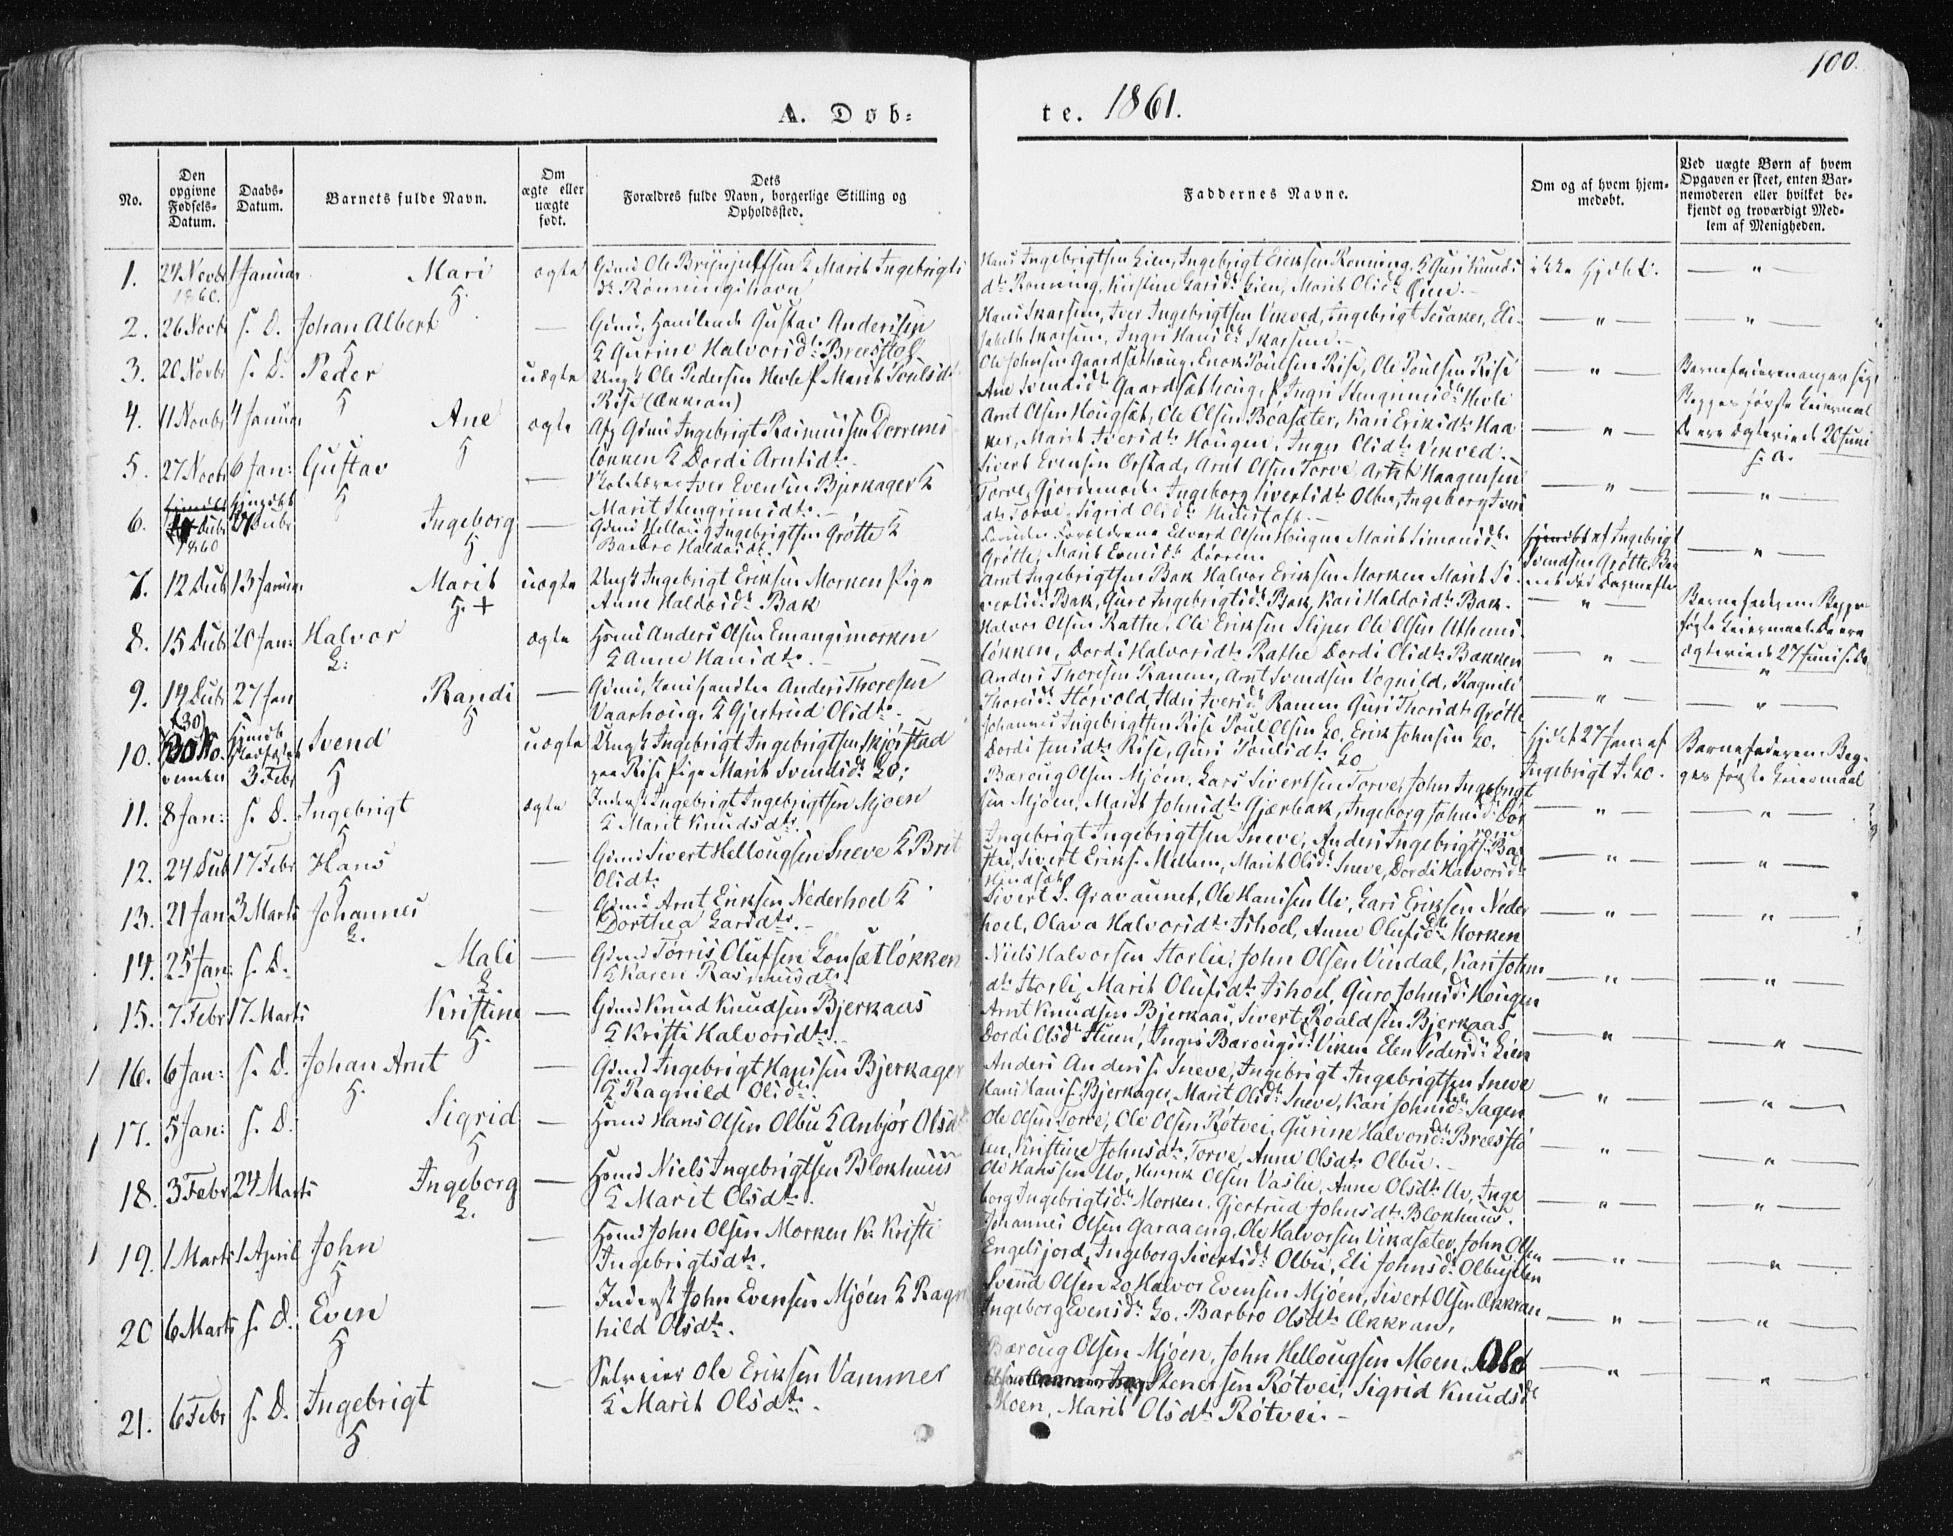 100.
A. Døb-
te. 1861.
No.
Den opgivne Fødsels-Datum.
Daabs-Datum.
Barnets fulde Navn.
Om ægte eller uægte født.
Dets Forældres fulde Navn, borgerlige Stilling og Opholdssted.
Faddernes Navne.
Om og af hvem hjemmedøbt.
Ved uægte Børn af hvem Opgaven er skeet, enten Barnemoderen eller hvilket bekjendt og troværdigt Medlem af Menigheden.
1. 24 Novbr 1860. 1 Januar Mari ægte Gmd Ole Brynjulfsen K Marit Ingebrigts
dtr Rønningshavn
Hans Ingebrigtsen Lien, Ingebrigt Eriksen Rønning, K Guri Knuds
dtr Rønning, Kirstine Larsdtr Lien, Marit Olsdtr
2. 26 Novbr s. D. Johan Albert — Gmd, Handlende Gustav Andersen
K Gurine Halvorsdtr Breesstøl
Hans Skarsem, Iver Ingebrigtsen Vikved, Ingebrigt
Skarsem, Ingri Hansdtr Skarsem.
3. 20 Novbr s. D. Peder uægte Ungk Ole Pedersen Hevle P Marit Poulsdtr
Rise (Ækkran)
Ole Johnsen Gaardsæthoug, Enok Poulsen Rise, Ole Poulsen Rise
Ane Svendsdtr Gaardsæthoug, P Ingri Stengrimsdtr Hevle
Barnefaderen
Begges første Leiermaal
De ere ægteviede 20 Juni
s. A.
4. 11 Novbr 4 Januar Ane ægte Afg Gmd Ingebrigt Rasmussen Dørrems
løkken K Dordi Arntsdtr
Arnt Olsen Hougsæt, Ole Olsen Boasæter, Kari Eriksdtr Haa
ker, Marit Iversdtr Hougen, Inger Olsdtr Vikved.
5. 27 Novbr 6 Jan: Gustav — Skolelærer Iver Evensen Bjerkager K
Marit Stengrimsdtr.
Sivert Evensen Ørstad, Arnt Olsen Torve, Arnt Haagensen
Torve, Gjordemoder Ingeborg Sivertsdtr Olbu, Ingeborg Ivers
dtr Torve, Sigrid Olsdtr
6. Decbr 1860 Decbr Ingeborg — Gmd Helloug Ingebrigtsen Grøtte K
Barbro Haldosdtr
Forældrene Edvard Olsen Hougen Marit Simonsdtr
Grøtte, Marit Evensdtr Dørrem
af Ingebrigt
Svendsen Grøtte
7. 12 Decbr 13 Januar Marit + uægte Ungk Ingebrigt Eriksen Morken Pige
Anne Haldosdtr Bak
Arnt Ingebrigtsen Bak Halvor Eriksen Morken Marit Si
vertsdtr Bak, Guro Ingebrigtsdtr Bak, Kari Haldosdtr Bak.
Barnefaderen. Begges
første Leiermaal. De ere
ægteviede 27 Juni s. A.
8. 15 Decbr 20 Jan: Halvor L: ægte Hmd Anders Olsen Emangsmorken
K Anne Hansdtr.
Halvor Olsen Rathe, Ole Eriksen Sliper Ole Olsen Uthus
løkken, Dordi Halvorsdtr Rathe Dordi Olsdtr Bakken
9. 19 Decbr 27 Jan Randi — Gmd, Anders Thoresen
Vaarhoug, K Gjertrud Olsdtr.
Anders Thoresen Ramem, Arnt Svendsen Vognild, Ragnild
Thoresdtr Storvold, Iversdtr Ramem Guri Thorsdtr Grøtte
10. (30) 3 Febr Svend uægte Ungk Ingebrigt Ingebrigtsen Skjørstad
paa Rise Pige Marit Svendsdtr Do;
Johannes Ingebrigtsen Rise Poul Olsen Do, Erik Johnsen Do.
Dordi Rise, Guri Poulsdtr Do
27 Jan: af
Ingebrigt J. Do.
Barnefaderen. Beg-
ges første Leiermaal
11. 8 Jan: s. D. Ingebrigt ægte Inderst Ingebrigt Ingebrigtsen Mjøen
K Marit Knudsdtr.
Baroug Olsen Mjøen, Lars Sivertsen Torve, John Ingebrigt
sen Mjøen, Marit Johnsdtr Gjærbak, Ingeborg Johnsdtr Dør
rem
12. 24 Decbr 17 Febr Hans — Gmd Sivert Hellougsen Sneve K Brit
Olsdtr
Ingebrigt Ingebrigtsen Sneve, Anders Ingebrigts.
Sivert Eriks. Mellem, Marit Olsdtr Sneve, Dordi Halvorsdtr
13. 21 Jan 3 Marts Johannes L. — Gmd Arnt Eriksen Nederhoel K.
Dorthea Larsdtr.
Sivert S. Gravaunet, Ole Hansen Uv, Lars Eriksen Neder
hoel, Olava Halvorsdtr Ishoel, Anne Olufsdtr Morken
14. 25 Jan: s. D. Mali L. — Gmd Torris Olufsen Lonsætløkken
K Karen Rasmusdtr
Niels Halvorsen Storlie, John Olsen Vindal, Kari Johns
dtr Storli, Marit Olufsdtr Ishoel, Guro Johnsdtr Hougen
15. 7 Febr 17 Marts Kristine — Gmd Knud Knudsen Bjerkaas
K Kristi Halvorsdtr.
Arnt Knudsen Bjerkaas, Sivert Roaldsen Bjerkaas
Dordi Olsd Steen, Ingri Barougsdtr Viken Elen Pedersdtr Lien
16. 6 Jan: s. D. Johan Arnt — Gmd Ingebrigt Hansen Bjerkager
K Ragnild Olsdtr.
Anders Anders. Sneve, Ingebrigt Ingebrigtsen Sneve
Hans Hans. Bjerkager, Marit Olsdtr Sneve, Kari Johnsdtr Sagen
17. 5 Jan: s. D. Sigrid — Hmd Hans Olsen Olbu K Anbjør Olsdtr
Ole Olsen Torve, Ole Olsen Røtvei, Gurine Halvorsdtr Breestø
len, Kristine Johnsdtr Torve, Anne Olsdtr Olbu.
18. 3 Febr 24 Marts Ingeborg L. — Hmd Niels Ingebrigtsen Blokhuus
K Marit Olsdtr.
Ole Hanssen Uv, Henrik Olsen Vaslie, Anne Olsdtr Uv, Inge
borg Ingebrigtsdtr Morken, Gjertrud Johnsdtr Blokhuus.
19. 1 Marts 1 April John — Hmd John Olsen Morken K. Kristi
Ingebrigtsdtr.
Johannes Olsen Garaaeng, Ole Halvorsen Vikasæter, John Olsen
Engelsjord, Ingeborg Sivertsdtr Olbu, Eli Johnsdtr
20 6 Marts s. D. Even — Inderst John Evensen Mjøen K Ragn
hild Olsdtr.
Svend Olsen Do Halvor Evensen Mjøen, Sivert Olsen Ækkran
Ingeborg Evensdtr Do. Barbro Olsdtr Ækkran.
21. 6 Febr s. D. Ingebrigt — Selveier Ole Eriksen Vammer
K Marit Olsdtr.
Baroug Olsen Mjøen, John Hellougsen Moen, Ole
Stenersen Røtvei, Sigrid Knudsdtr
Moen, Marit Olsdtr Røtvei.